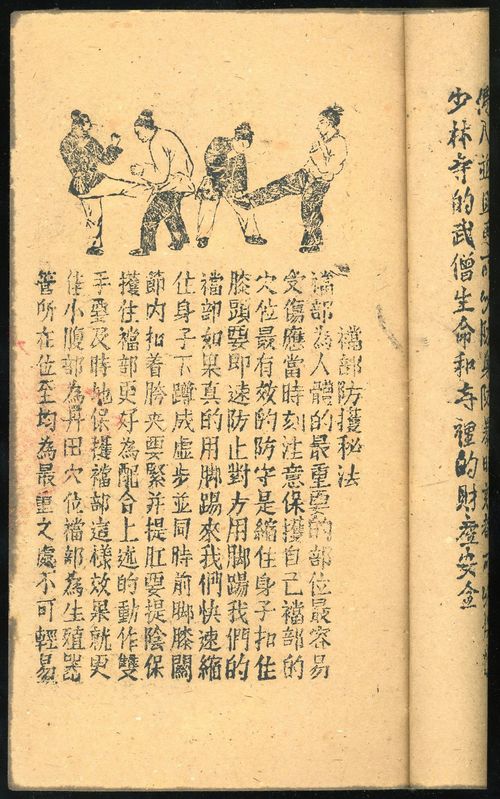 少林寺的武僧生命和寺裡的財產安全
襠部防護秘法
襠部為人體的最重要的部位最容易
受傷應當時刻注意保護自己襠部的
穴位最有效的防守是縮住身子扣住
膝頭要即速防止對方用脚踢我們的
襠部如果真的用脚踢來我們快速縮
住身子下蹲成虛步並同時前脚膝關
節内扣着胯夾要緊并提肛要提陰保
護住襠部更好為配合上述的動作雙
手要及時地保護襠部這樣效果就更
佳小腹部為丹田穴位襠部為生殖器
管所在位至均為最重之處不可輕易